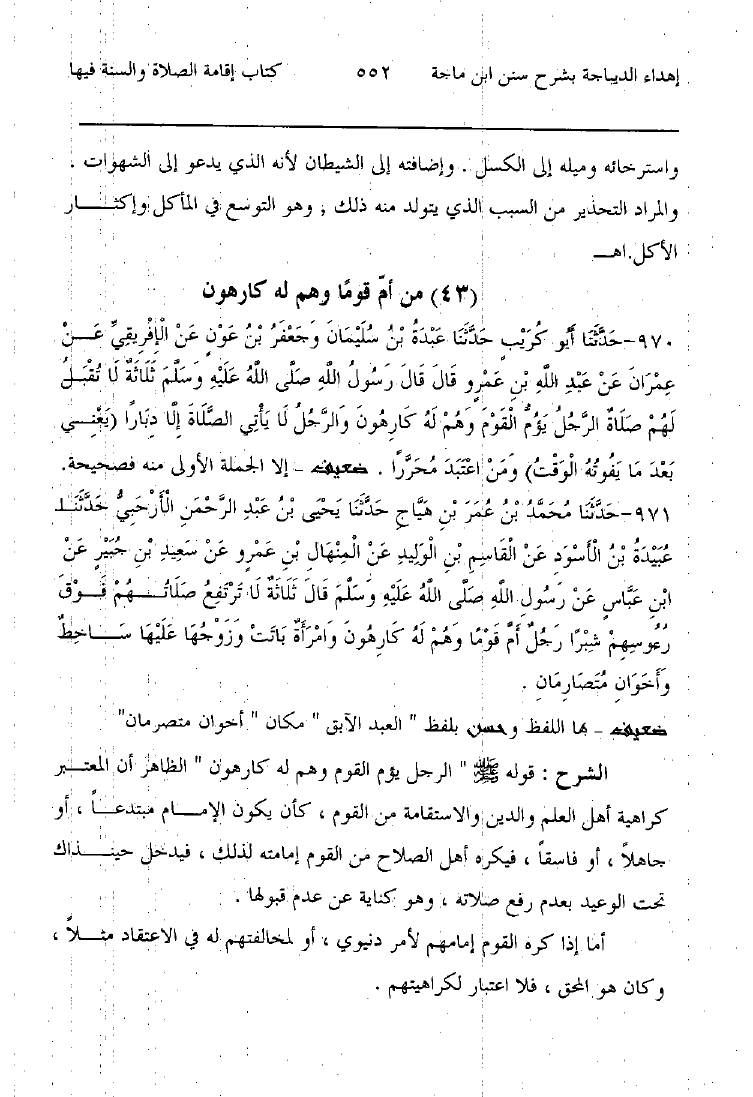 إهداء الديباجة بشرح سنن ابن ماجة ٥٥٢ كتاب إقامة الصلاة والسنة فيها
واسترخائه وميله إلى الكسل . وإضافته إلى الشيطان لأنه الذي يدعو إلى الشهوات .
والمراد التحذير من السبب الذي يتولد منه ذلك ، وهو التوسع في المأكل وإكثـــــار
الأكل.اهـــ
(٤٣) من أمّ قومًا وهم له كارهون
٩٧٠-حَدَّثَنَا أَبُو كُرَيْبٍ حَدَّثَنَا عَبْدَةُ بْنُ سُلَيْمَانَ وَجَعْفَرُ بْنُ عَوْنٍ عَنْ الْإِفْرِيقِيِّ عَـــنْ
عِمْرَانَ عَنْ عَبْدِ اللَّهِ بْنِ عَمْرٍو قَالَ قَالَ رَسُولُ اللَّهِ صَلَّى اللَّهُ عَلَيْهِ وَسَلَّمَ ثَلَاثَةٌ لَا تُقْبَلُ
لَهُمْ صَلَاةٌ الرَّجُلُ يَؤُمُّ الْقَوْمَ وَهُمْ لَهُ كَارِهُونَ وَالرَّجُلُ لَا يَأْتِي الصَّلَاةَ إِلَّا دِبَارًا (يَعْنِـــي
بَعْدَ مَا يَفُوتُهُ الْوَقْتُ) وَمَنْ اعْتَبَدَ مُحَرَّرًا . ضعيف - إلا الجملة الأولى منه فصحيحة.
٩٧١-حَدَّثَنَا مُحَمَّدُ بْنُ عُمَرَ بْنِ هَيَّاجٍ حَدَّثَنَا يَحْيَى بْنُ عَبْدِ الرَّحْمَنِ الْأَرْحَبِيُّ حَدَّثَنَـــا
عُبَيْدَةُ بْنُ الْأَسْوَدِ عَنْ الْقَاسِمِ بْنِ الْوَلِيدِ عَنْ الْمِنْهَالِ بْنِ عَمْرٍو عَنْ سَعِيدِ بْنِ جُبَيْرٍ عَنْ
ابْنِ عَبَّاسٍ عَنْ رَسُولِ اللَّهِ صَلَّى اللَّهُ عَلَيْهِ وَسَلَّمَ قَالَ ثَلَاثَةٌ لَا تَرْتَفِعُ صَلَاتُـــهُمْ فَـــوْقَ
رُءُوسِهِمْ شِبْرًا رَجُلٌ أَمَّ قَوْمًا وَهُمْ لَهُ كَارِهُونَ وَامْرَأَةٌ بَاتَتْ وَزَوْجُهَا عَلَيْهَا سَـــاخِطٌ
وَأَخَوَانِ مُتَصَارِمَانِ .
ضعيف - بهذا اللفظ وحسن بلفظ " العبد الآبق " مكان " أخوان متصرمان"
الشرح : قوله ﷺ " الرجل يؤم القوم وهم له كارهون " الظاهر أن المعتـــبر
كراهية أهل العلم والدين والاستقامة من القوم ، كأن يكون الإمـــام مبتدعـــاً ، أو
جاهلاً ، أو فاسقاً ، فيكره أهل الصلاح من القوم إمامته لذلك ، فيدخل حينـــذاك
تحت الوعيد بعدم رفع صلاته ، وهو كناية عن عدم قبولها .
أما إذا كره القوم إمامهم لأمر دنيوي ، أو لمخالفتهم له في الاعتقاد مثـــلاً ،
وكان هو المحق ، فلا اعتبار لكراهيتهم .